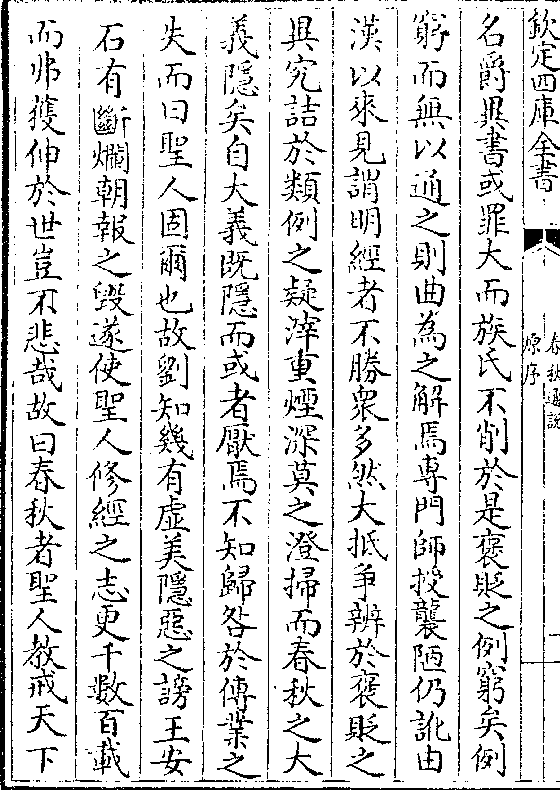 欽定四庫全書
春秋通說
原序
名爵異書或罪大而族氏不削於是褒貶之例窮矣例
窮而無以通之則曲為之解焉專門師授襲陋仍訛由
漢以來見謂明經者不勝衆多然大抵爭辨於褒貶之
異究詰於類例之疑滓重煙深莫之澄掃而春秋之大
義隱矣自大義既隱而或者厭焉不知歸咎於傳業之
失而曰聖人固爾也故劉知幾有虛美隱惡之謗王安
石有斷爛朝報之毀遂使聖人修經之志更千數百載
而弗獲伸於世豈不悲哉故曰春秋者聖人教戒天下